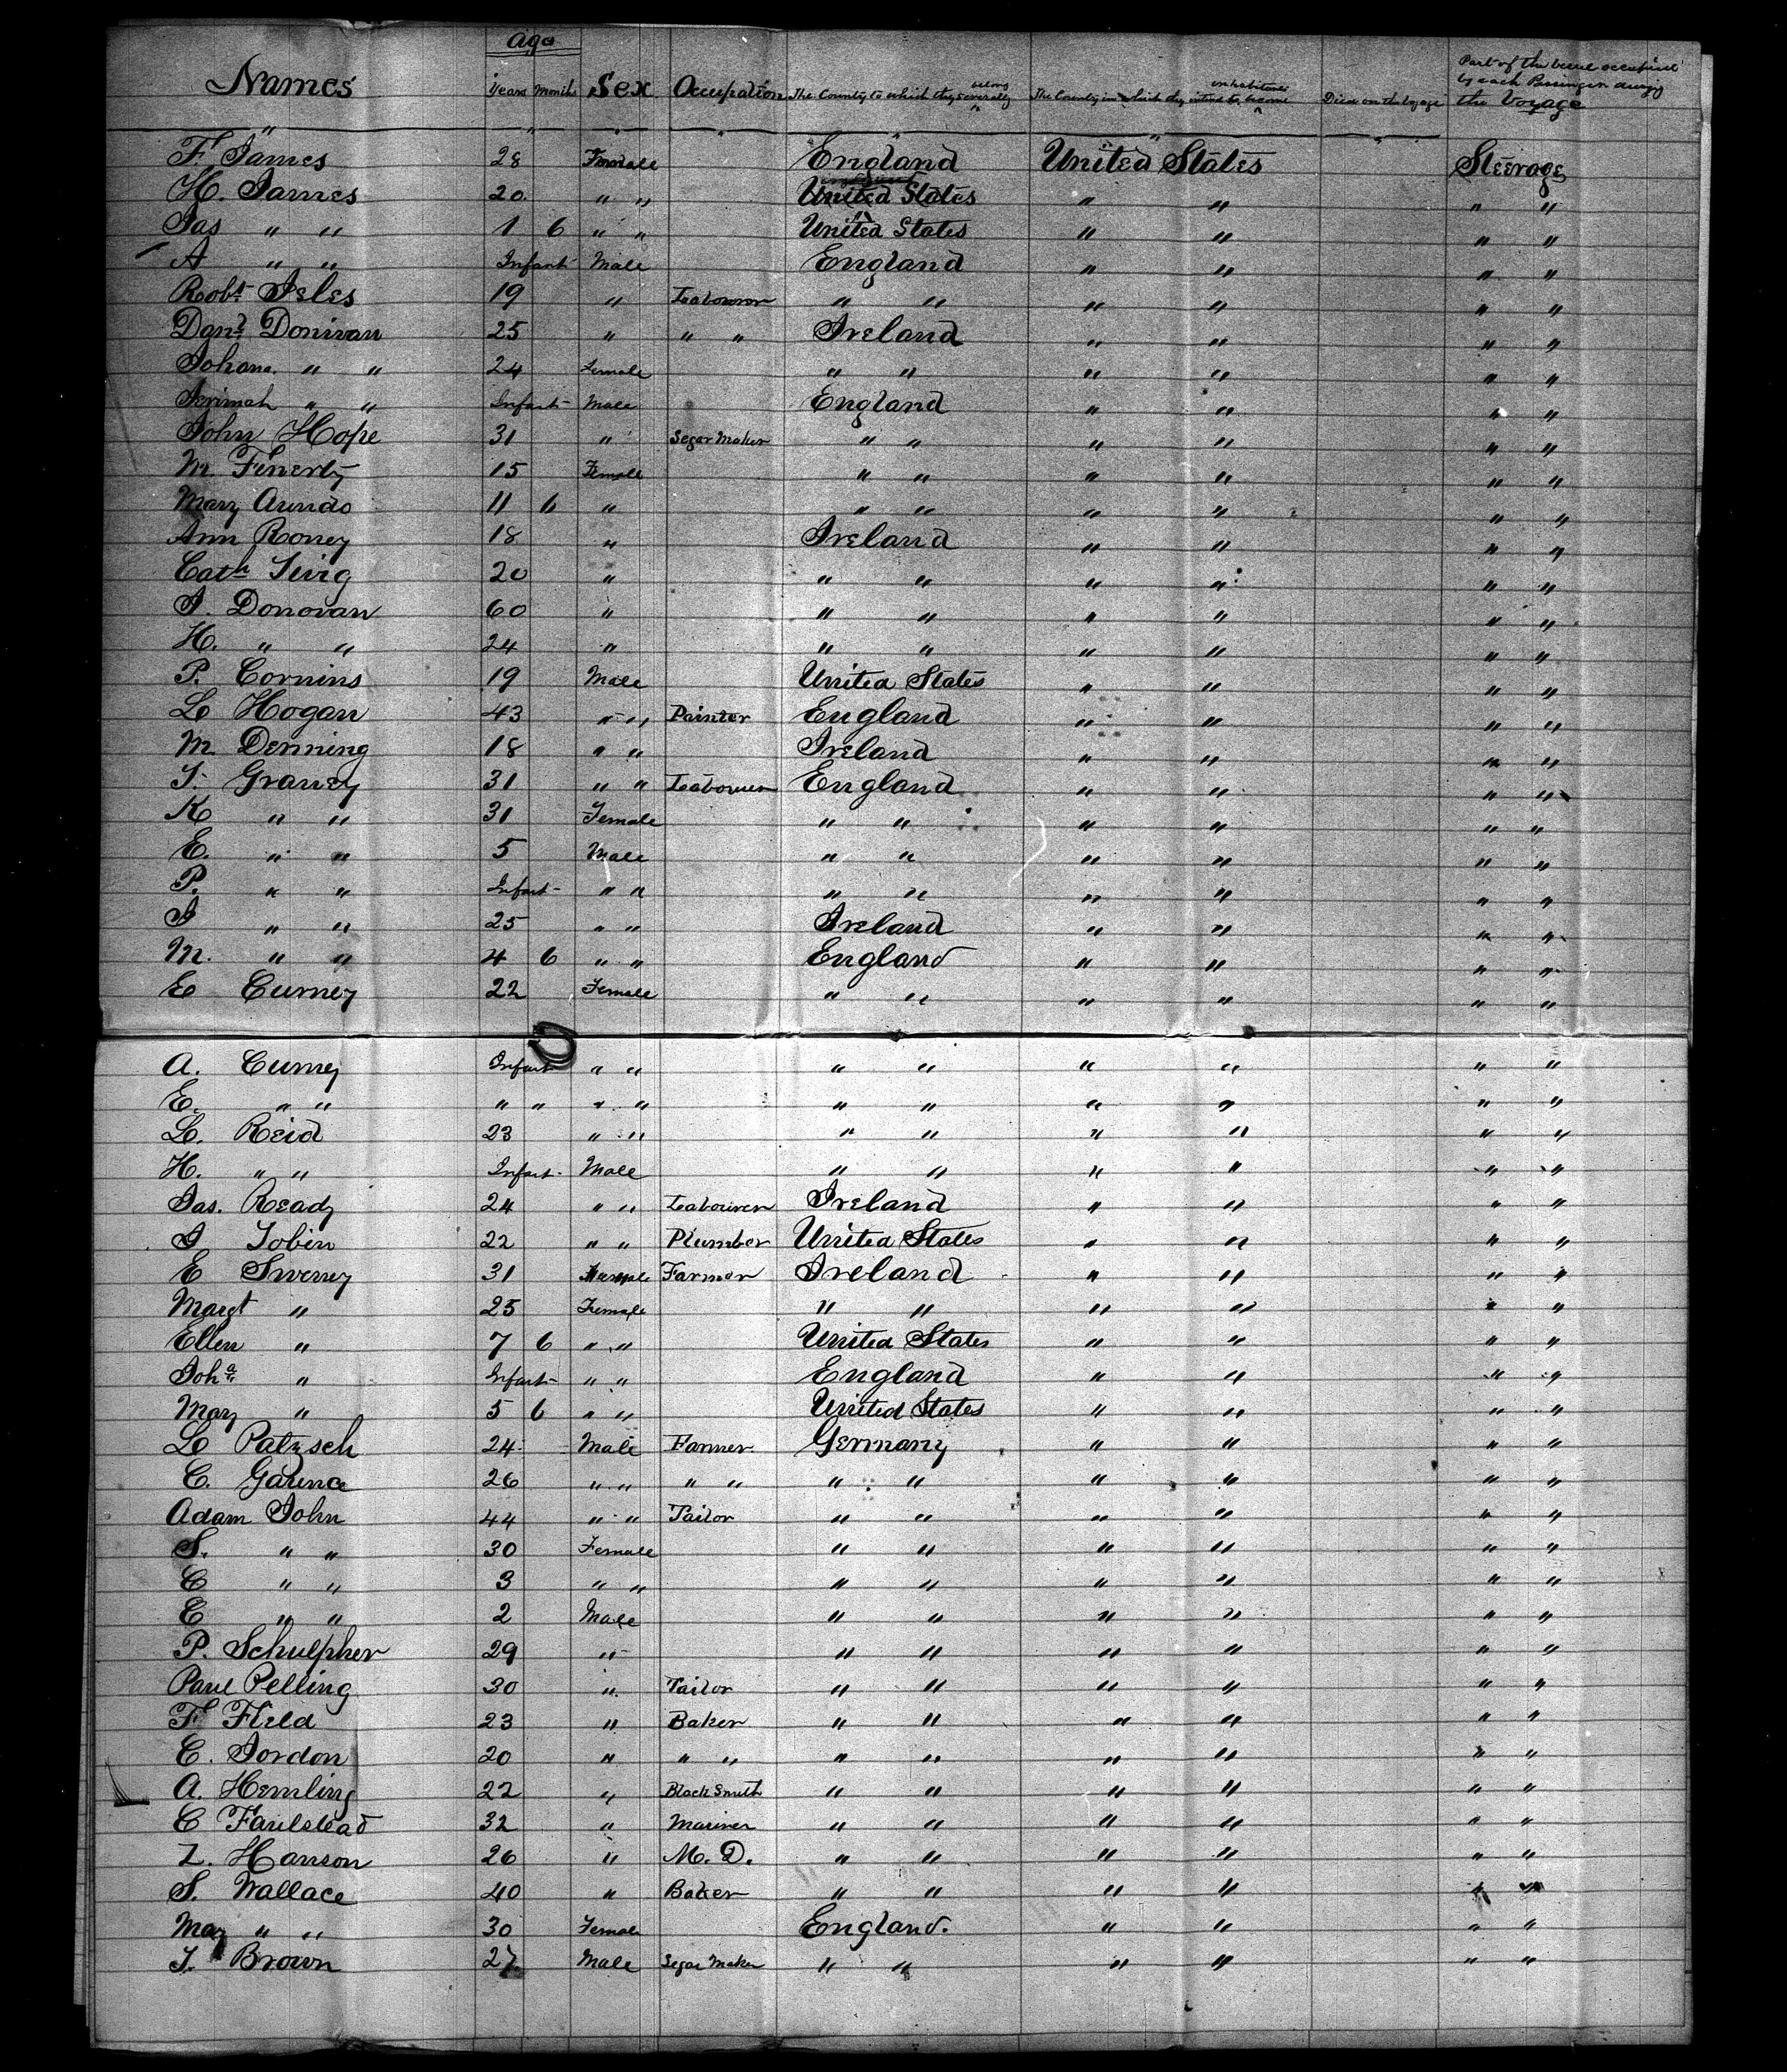 Age
Names Years Months Sex Occupation The County to which they severally belong The County in which they intend to become inhabitants Died on the Voyage Part of the vessel occupied by each Passenger during the Voyage
" " " " " " "
F. James 28 Female England United States Steerage
H. James 20 " " United States " " " "
Jas " " 1 6 " " United States " " " "
A " " Infant Male England " " " "
Robt Iles 19 " Labourer " " " " " "
Danl Donivan 25 " " " Ireland " " " "
Johana " " 24 Female " " " " " "
Jerimah " " Infant Male England " " " "
John Hope 31 " Segar Maker " " " " " "
M. Finerty 15 Female " " " " " "
Mary Arundo 11 6 " " " " " " "
Ann Roney 18 " Ireland " " " "
Cath 20 " " " " " " "
J. Donovan 60 " " " " " " "
H. " " 24 " " " " " " "
P. Cornins 19 Male United States " " " "
L Hogan 43 " " Painter England " " " "
M Denning 18 " " Ireland " " " "
T. Graney 31 " " Labourer England " " " "
K " " 31 Female " " " " " "
E. " " 5 Male " " " " " "
P. " " Infant " " " " " " " "
J " " 25 " " Ireland " " " "
M. " " 4 6 " " England " " " "
E Curney 22 Female " " " " " "
A. Curney Infant " " " " " " " "
E. " " " " " " " " " " " "
L. Reid 23 " " " " " " " "
H. " " Infant Male " " " " " "
Jas. Ready 24 " " Labourer Ireland " " " "
J Tobin 22 " " Plumber United States " " " "
E Sweney 31 Male Farmer Ireland " " " "
Margt " 25 Female " " " " " "
Ellen " 7 6 " " United States " " " "
Joha " Infant " " England " " " "
May " 5 6 " " United States " " " "
L Patzsch 24 Male Farmer Germany " " " "
C. Garince 26 " " " " " " " " " "
Adam John 44 " " Tailor " " " " " "
S. " " 30 Female " " " " " "
C " " 3 " " " " " " " "
C " " 2 Male " " " " " "
P. Schulpher 29 " " " " " " "
Paul Pelling 30 " Tailor " " " " " "
F Field 23 " Baker " " " " " "
C. Jordon 20 " " " " " " " " "
A. Hemling 22 " Black Smith " " " " " "
C Faulstead 32 " Mariner " " " " " "
Z. Hanson 26 " M. D. " " " " " "
S. Wallace 40 " Baker " " " " " "
May " " 30 Female England. " " " "
T. Brown 27 Male Segar Maker " " " " " "